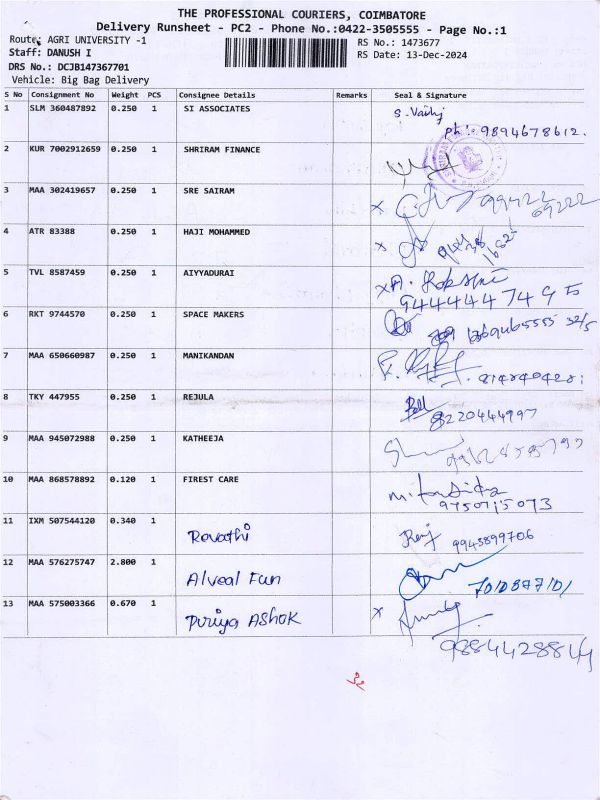 THE PROFESSIONAL COURIERS, COIMBATORE
Delivery Runsheet - PC2 - Phone No.:0422-3505555 - Page No.:1
Route: AGRI UNIVERSITY -1
RS No.: 1473677
Staff: DANUSH I
RS Date: 13-Dec-2024
DRS No.: DCJB147367701
Vehicle: Big Bag Delivery
S No Consignment No Weight PCS Consignee Details Remarks Seal & Signature
1 SLM 360487892 0.250 1 SI ASSOCIATES
Ph: 9894678612.
2 KUR 7002912659 0.250 1 SHRIRAM FINANCE
3 MAA 302419657 0.250 1 SRE SAIRAM x 99422
69222
4 ATR 83388 0.250 1 HAJI MOHAMMED x
5 TVL 8587459 0.250 1 AIYYADURAI x A.
9444447495
6 RKT 9744570 0.250 1 SPACE MAKERS
7 MAA 650660987 0.250 1 MANIKANDAN
8 TKY 447955 0.250 1 REJULA
8220444997
9 MAA 945072988 0.250 1 KATHEEJA
10 MAA 868578892 0.120 1 FIREST CARE
9750715073
11 IXM 507544120 0.340 1 Revathi 9943899706
12 MAA 576275747 2.800 1 Alveal Fun
13 MAA 575003366 0.670 1 Puriya ASHOK x